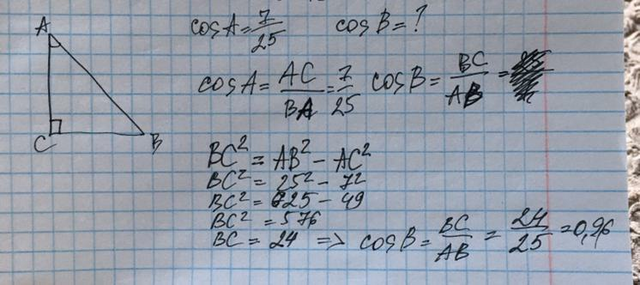 cosA = 7/25 cosB = ?
A
cosA = AC/BA = 7/25 cosB = BC/AB =
C B
BC² = AB² - AC²
BC² = 25² - 7²
BC² = 625 - 49
BC² = 576
BC = 24 => cosB = BC/AB = 24/25 = 0,96